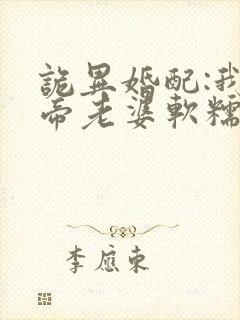 詭異婚配:我
帝老婆軟糯
李應東